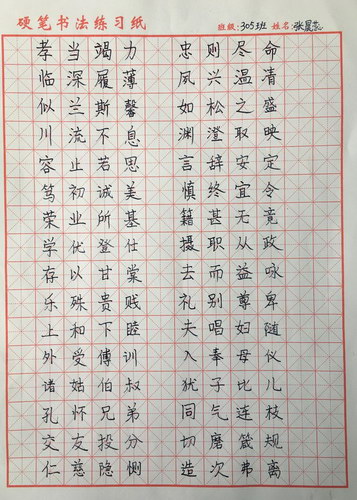 硬笔书法练习纸 班级：305班 姓名：张晨
孝当竭力 忠则尽命
临深履薄 凤兴温清
似兰斯馨 如松之盛
川流不息 渊澄取映
容止若思 言辞安定
笃初诚美 慎终宜令
荣业所基 籍甚无竟
学优登仕 摄职从政
存以甘棠 去而益咏
乐殊贵贱 礼别尊卑
上和下睦 夫唱妇随
外受傅训 入奉母仪
诸姑伯叔 犹子比儿
孔怀兄弟 同气连枝
交友投分 切磨箴规
仁慈隐恻 造次弗离